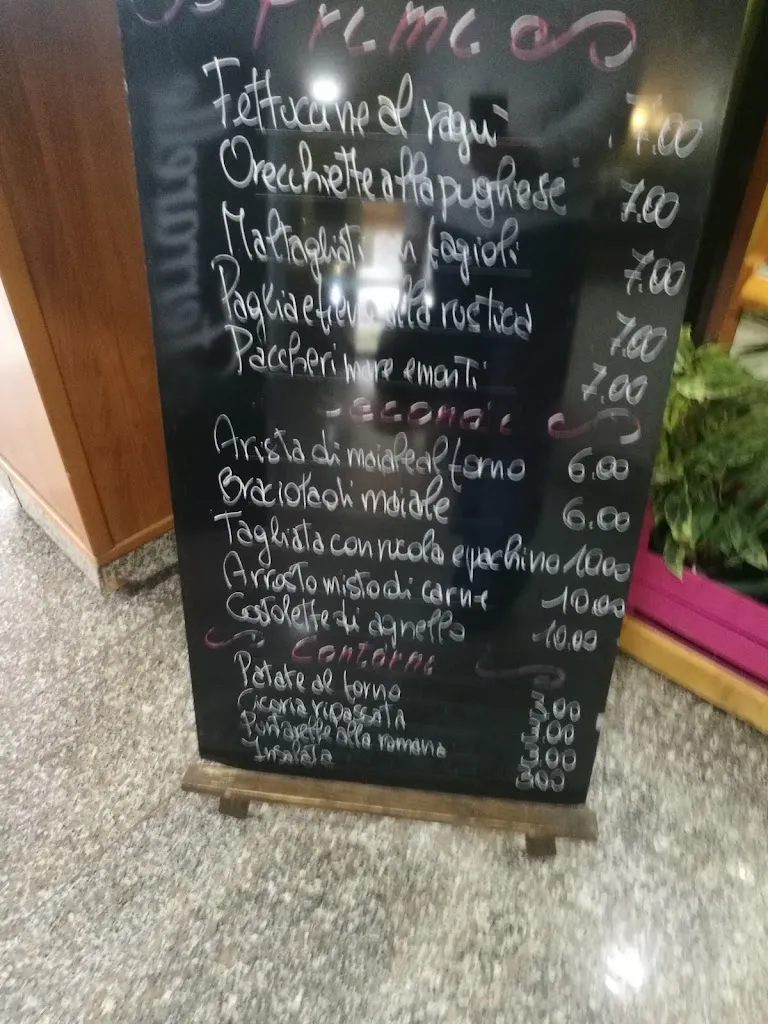 Primi
Fettuccine al ragù 7.00
Orecchiette alla pugliese 7.00
Maltagliati fagioli 7.00
Paglia e fieno alla rustica 7.00
Paccheri mare e monti 7.00
Secondi
Arista di maiale al forno 6.00
Braciola di maiale 6.00
Tagliata con rucola e pachino 10.00
Arrosto misto di carne 10.00
Costolette di agnello 10.00
Contorni
Patate al forno
Cicoria ripassata
Puntarelle alla romana
Insalata